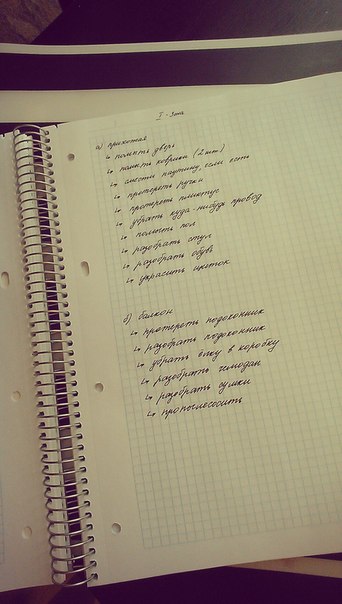 I - зона
а) прихожая
↳ помыть дверь
↳ помыть коврики (2 шт.)
↳ смести паутину, если есть
↳ протереть ручки
↳ протереть плинтус
↳ убрать куда-нибудь провод
↳ помыть пол
↳ разобрать стул
↳ разобрать обувь
↳ украсить цветок
б) балкон
↳ протереть подоконник
↳ разобрать подоконник
↳ убрать ёлку в коробку
↳ разобрать чемодан
↳ разобрать сумки
↳ пропылесосить